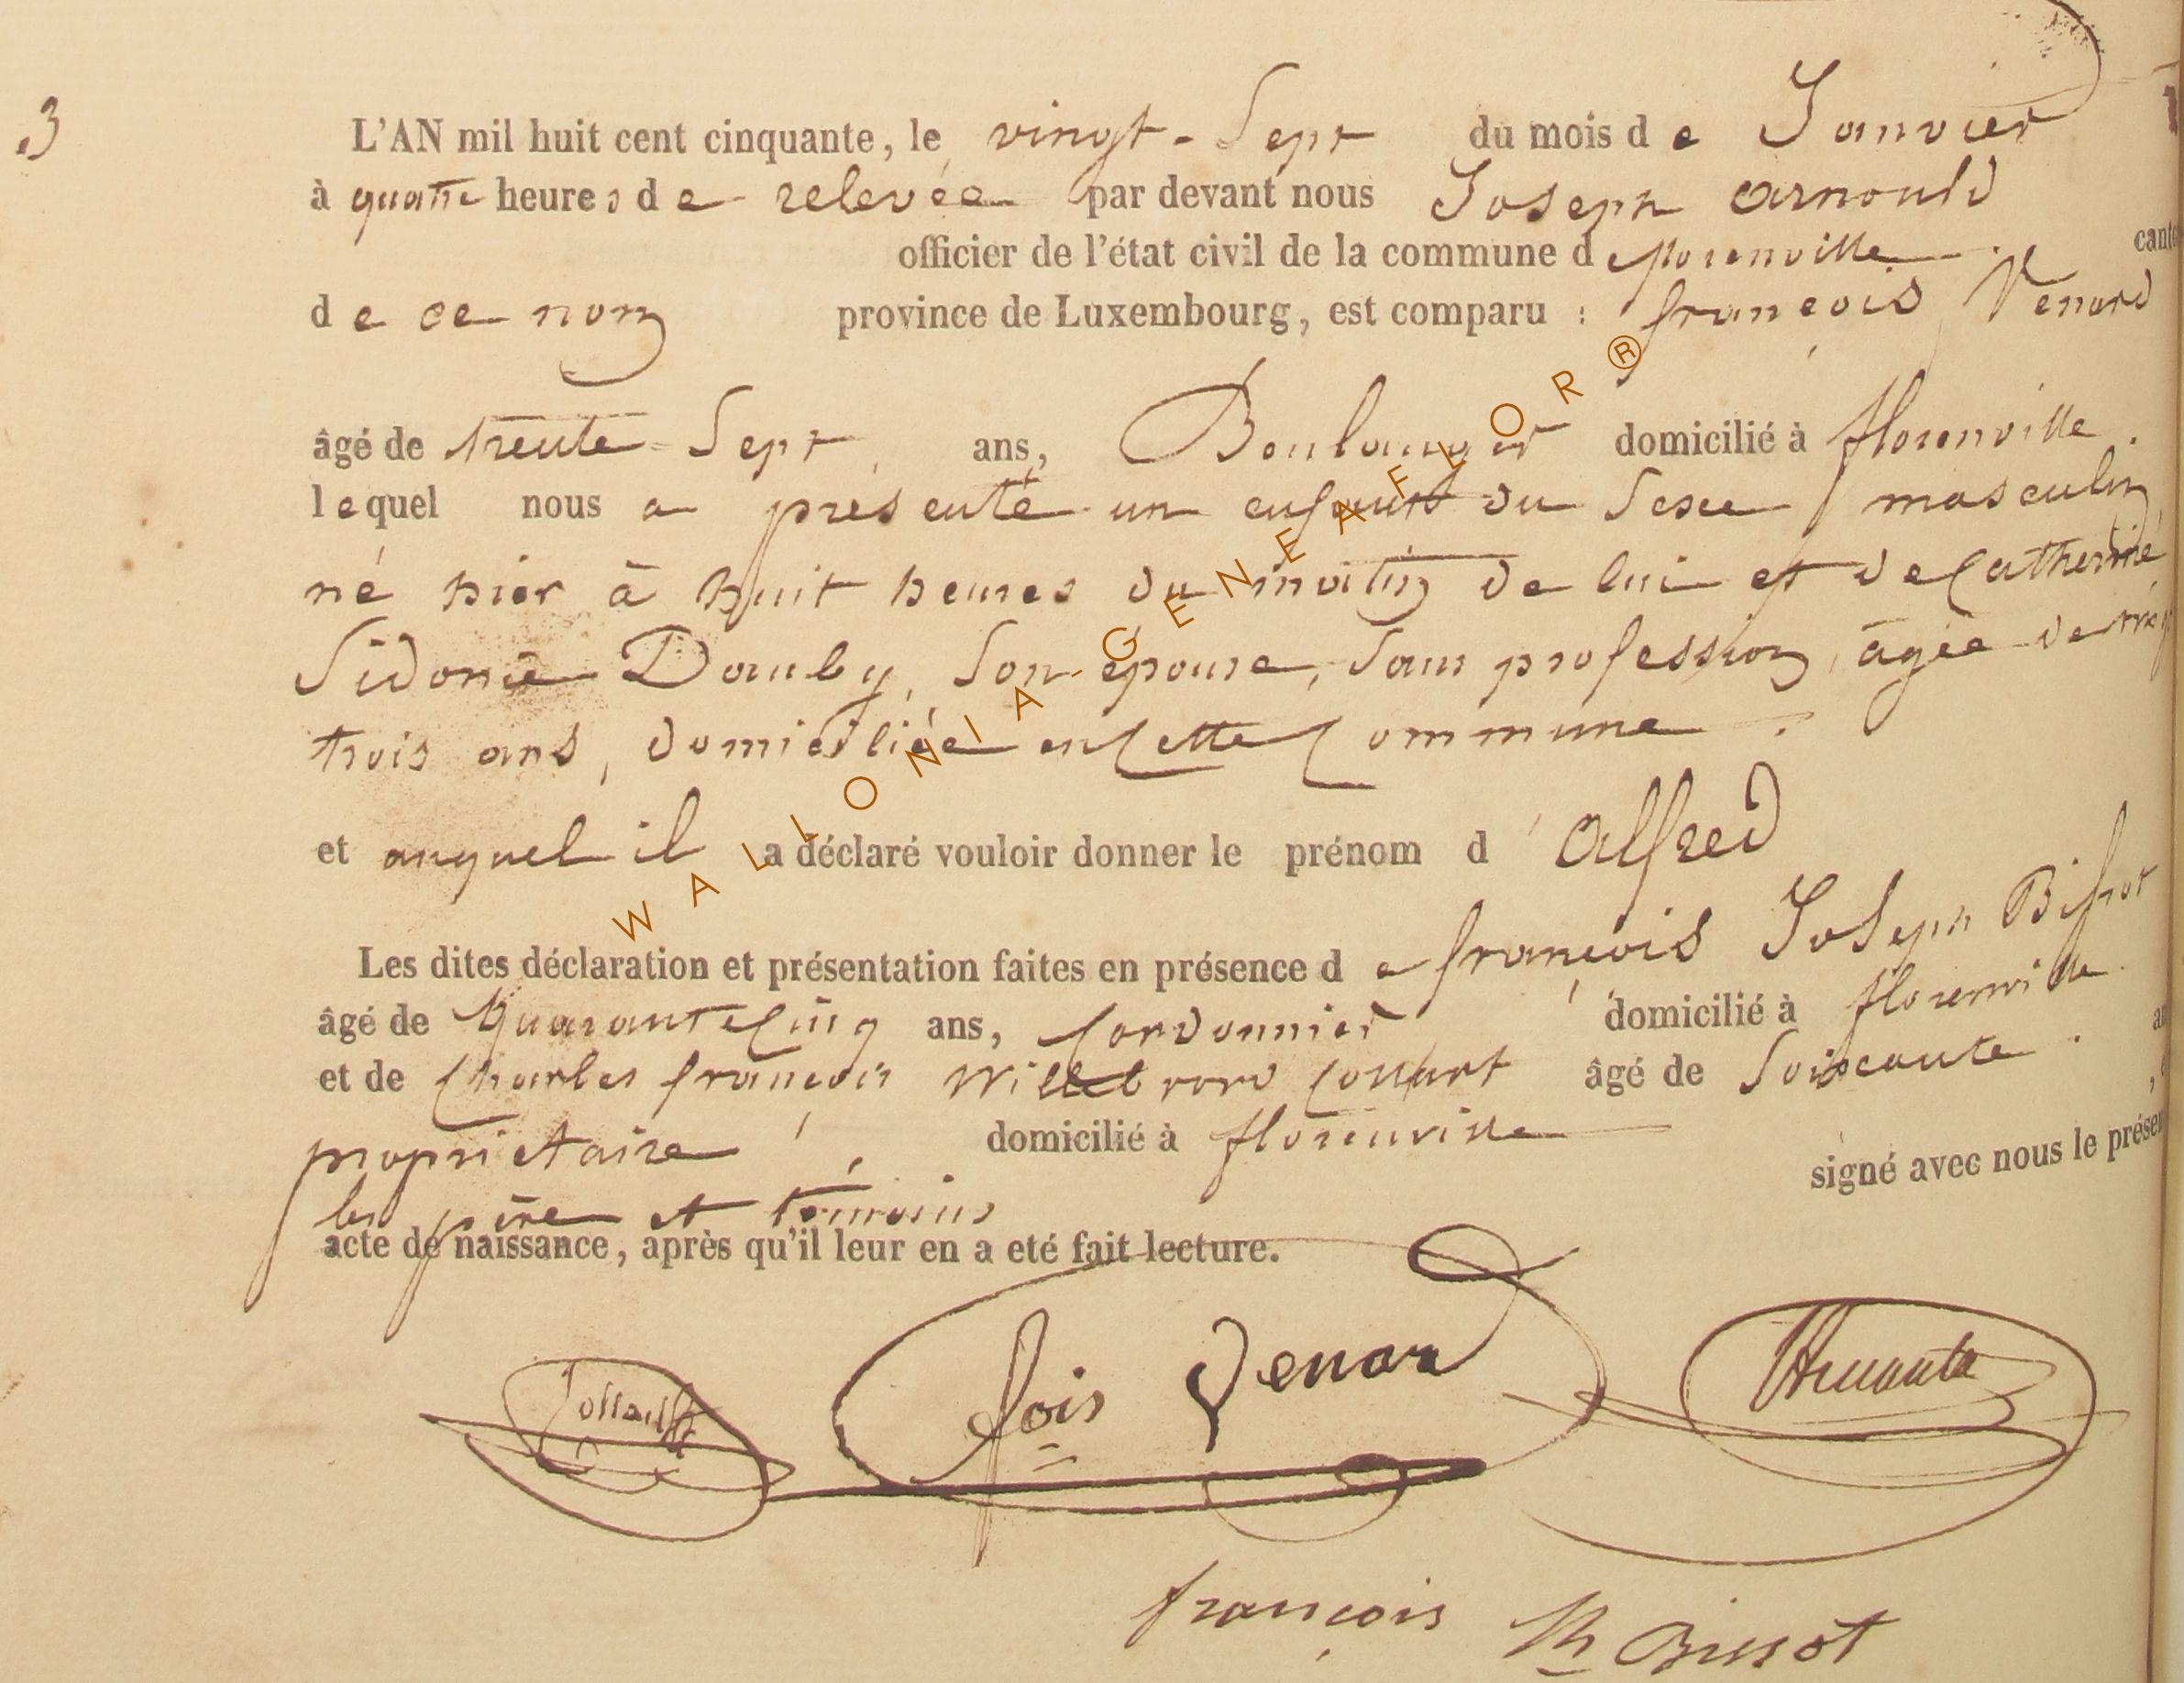 3
L'AN mil huit cent cinquante, le vingt-Sept du mois de Janvier
à quatre heures de relevée par devant nous Joseph arnould
officier de l'état civil de la commune de florenville cant
de ce nom province de Luxembourg, est comparu : françois Venard
âgé de trente-Sept ans, Boulanger domicilié à florenville.
lequel nous a présenté un enfant du Sexe masculin
né hier à huit heures du matin de lui et de Catherine
Sidonie Dauby, Son épouse, Sans profession, âgée de
trois ans, domiciliée en cette Commune.
et auquel il a déclaré vouloir donner le prénom d'alfred
Les dites déclaration et présentation faites en présence de françois Joseph Bissot
âgé de Quarante Cinq ans, Cordonnier domicilié à florenville
et de Charles françois Willebrord âgé de Soixante.
propriétaire domicilié à florenville
signé avec nous le présen
les père et témoins
acte de naissance, après qu'il leur en a eté fait lecture.
fois Venar
françois Bissot
WALLONIA-GENEAFLOR®